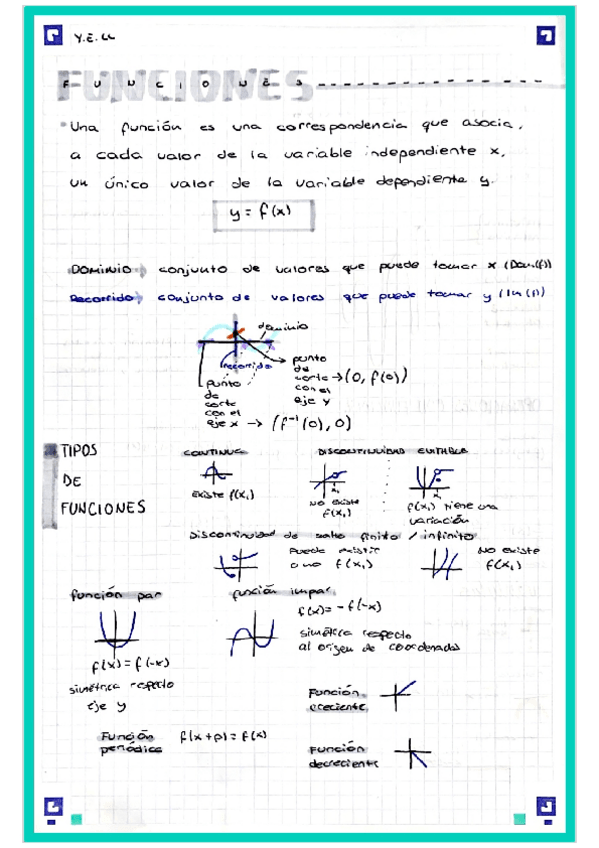 Y.E.LL
FUNCIONES
Una función es una correspondencia que asocia,
a cada valor de la variable independiente x,
un único valor de la variable dependiente y.
y = f(x)
DOMINIO → conjunto de valores que puede tomar x (Dom(f))
Recorrido → conjunto de valores que puede tomar y (Im(f))
dominio
recorrido
punto de corte con el eje y → (0, f(0))
punto de corte con el eje x → (f⁻¹(0), 0)
TIPOS
DE
FUNCIONES
CONTINUA
existe f(x₁)
DISCONTINUIDAD EVITABLE
x₁
NO existe
f(x₁)
x₁
f(x₁) tiene una
variación
Discontinuidad de salto finito / infinito
Puede existir
o no f(x₁)
NO existe
f(x₁)
función par
f(x) = f(-x)
simétrica respecto
eje y
función impar
f(x) = -f(-x)
simétrica respecto
al origen de coordenadas
Función
creciente
Función
periódica
f(x+p) = f(x)
Función
decreciente